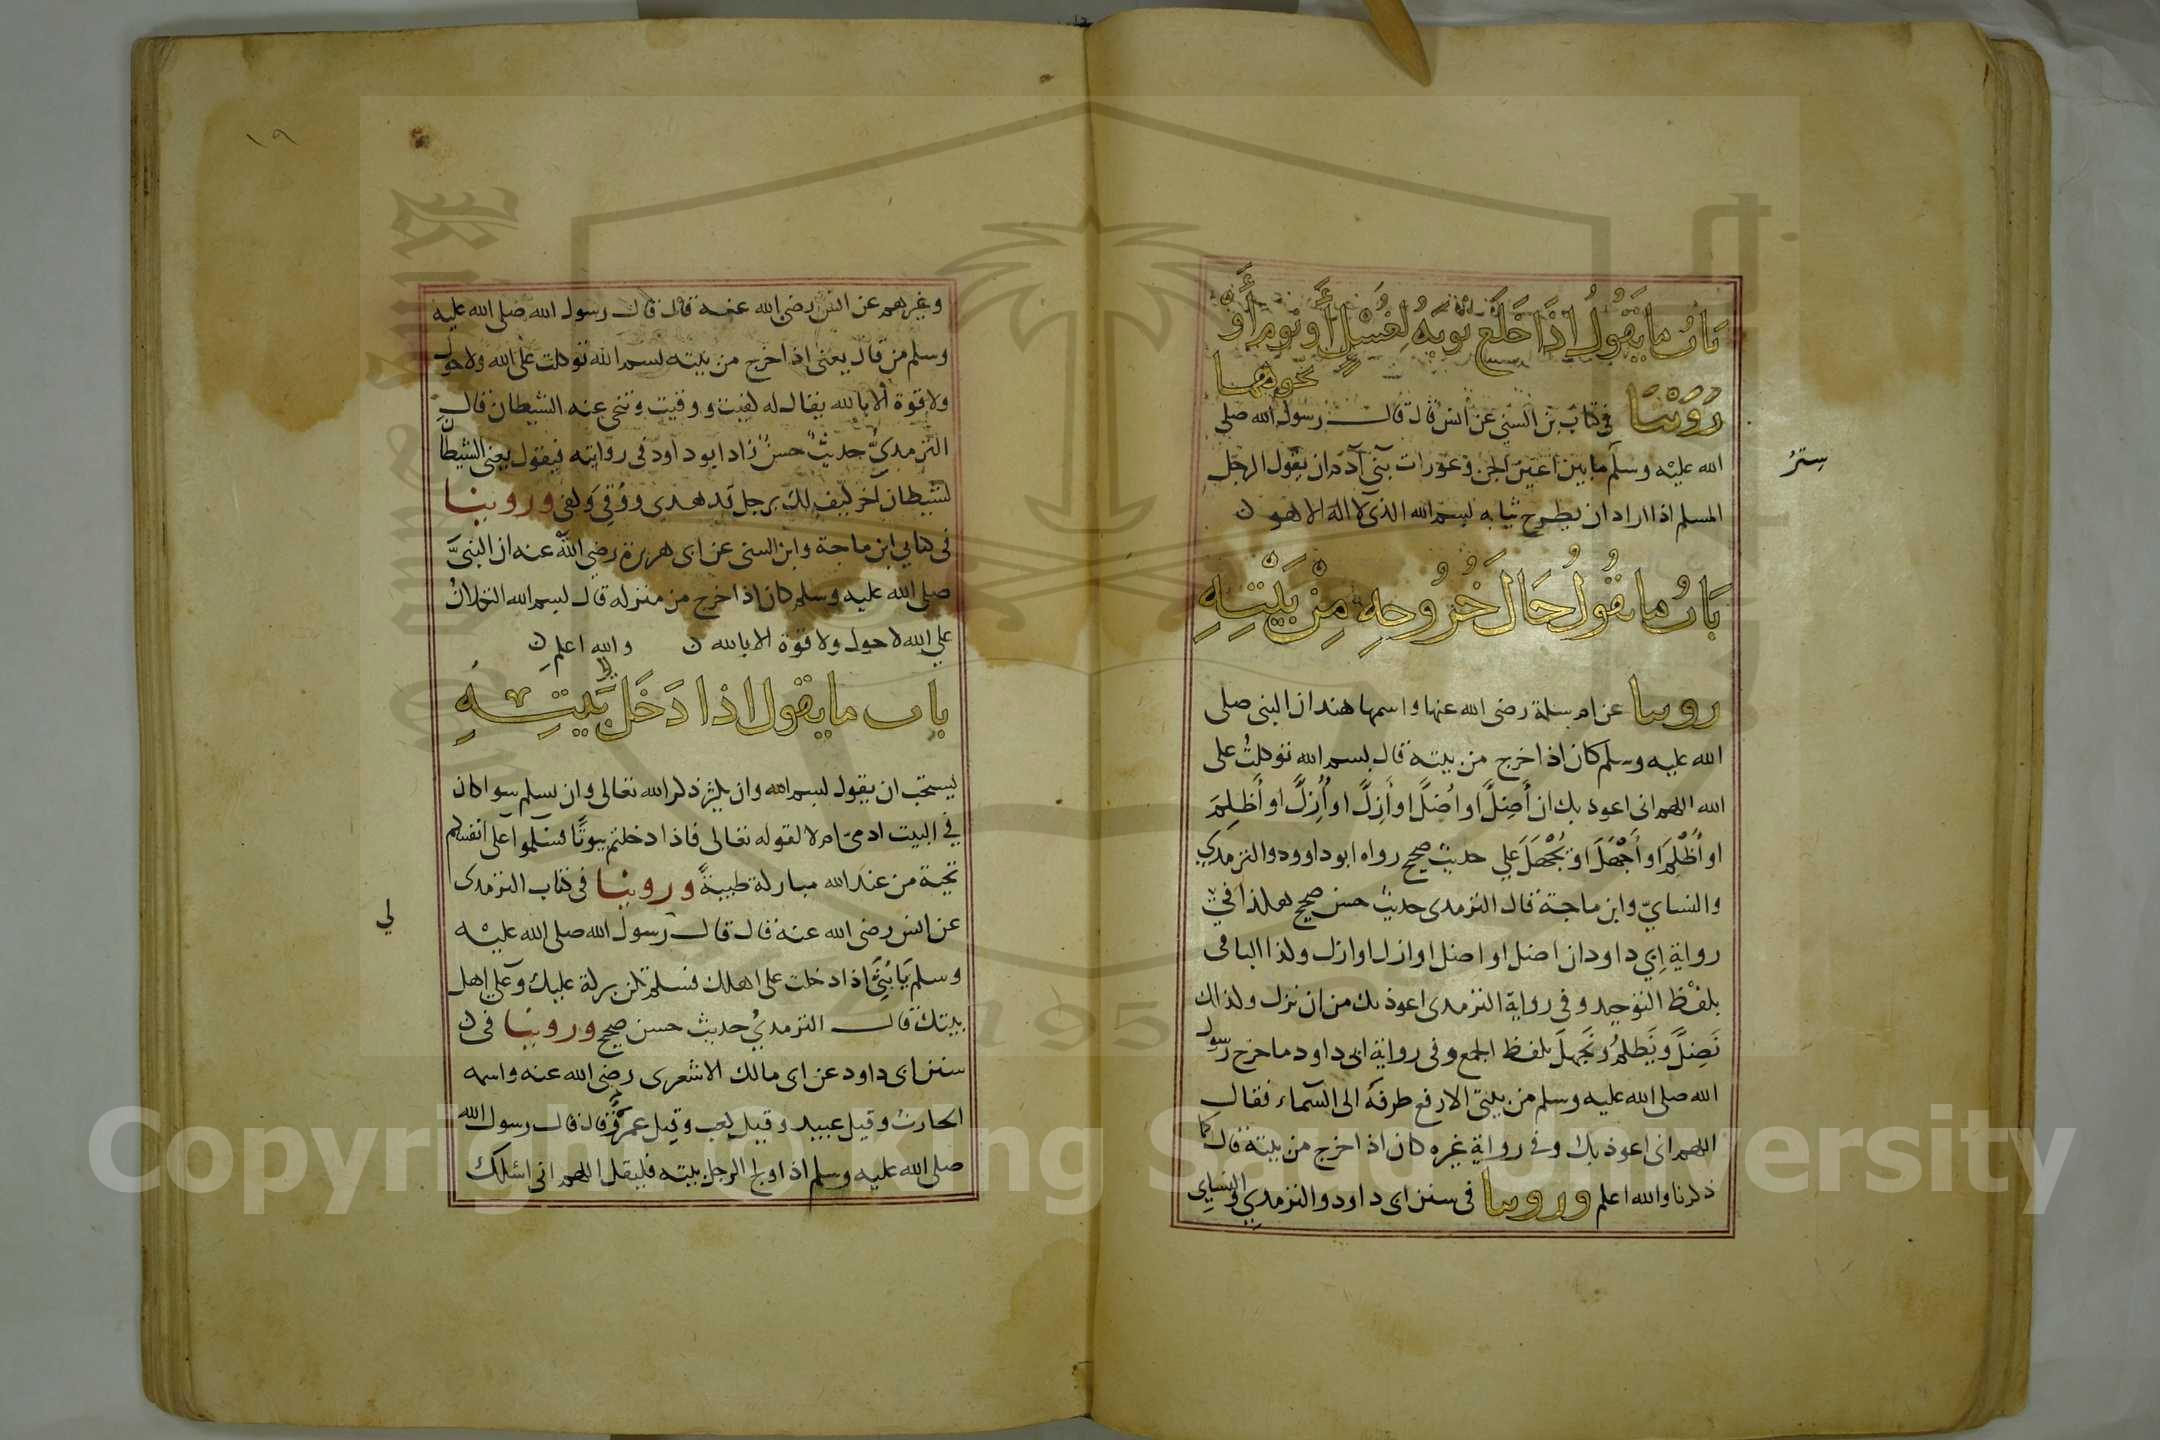 باب ما يقول اذا خلع ثوبه لغسل أو نوم أو
نحوهما
روينا في كتاب بن السني عن أنس قال قال رسول الله صلى
الله عليه وسلم ما بين اعين الجن وعورات بني آدم ان يقول الرجل
ستر
المسلم اذا اراد ان يطرح ثيابه بسم الله الذي لا اله الا هو
باب ما يقول حال خروجه من بيته
روينا عن ام سلمة رضى الله عنها واسمها هند ان النبى صلى
الله عليه وسلم كان اذا خرج من بيته قال بسم الله توكلت على
الله اللهم انى اعوذ بك ان أضل او اُضل او أزل او اُزل او أظلم
او اُظلم او أجهل او يجهل علي حديث صحيح رواه ابو داوود والترمذي
والنسايي وابن ماجة قال الترمذى حديث حسن صحيح هكذا في
رواية ابي داود ان اضل او اضل او ازل او ازل وكذا الباقى
بلفظ التوحيد وفى رواية الترمذى اعوذ بك من ان نزل وكذلك
نضل ونظلم ونجهل بلفظ الجمع وفى رواية ابى داود ما خرج رسول
الله صلى الله عليه وسلم من بيتى الا رفع طرفه الى السماء فقال
اللهم انى اعوذ بك وفى رواية غيره كان اذا خرج من بيته قال كما
ذكرنا والله اعلم وروينا فى سنن ابى داود والترمذي والنسايي
١٩
وغيرهم عن انس رضى الله عنه قال قال رسول الله صلى الله عليه
وسلم من قال يعنى اذا خرج من بيته بسم الله توكلت على الله ولا حول
ولا قوة الا بالله يقال له كفيت ووقيت وتنحى عنه الشيطان قال
الترمذيُّ حديثٌ حسنٌ زاد ابو داود فى روايته فيقول يعنى الشيطان
لشيطان آخر كيف لك برجل قد هدى ووُقى وكفى وروينا
فى كتابي ابن ماجة وابن السنى عن ابى هريرة رضي الله عنه ان النبىَّ
صلى الله عليه وسلم كان اذا خرج من منزله قال بسم الله التكلان
على الله لا حول ولا قوة الا بالله والله اعلم
باب ما يقول اذا دخل بيته
يستحب ان يقول بسم الله وان يكثر ذكر الله تعالى وان يسلم سوا كان
في البيت ادمىّ ام لا لقوله تعالى فاذا دخلتم بيوتًا فسلموا على انفسكم
تحية من عند الله مباركة طيبة وروينا فى كتاب الترمذى
عن انس رضى الله عنه قال قال رسول الله صلى الله عليه
لي
وسلم يا بُنَيَّ اذا دخلت على اهلك فسلم تكن بركة عليك وعلى اهل
بيتك قال الترمذيُ حديث حسن صحيح وروينا فى
سنن ابى داود عن ابى مالك الاشعرى رضى الله عنه واسمه
الحارث وقيل عبيد وقيل كعب وقيل عمرو قال قال رسول الله
صلى الله عليه وسلم اذا ولج الرجل بيته فليقل اللهم انى اسئلك
Copyright © King Saud University